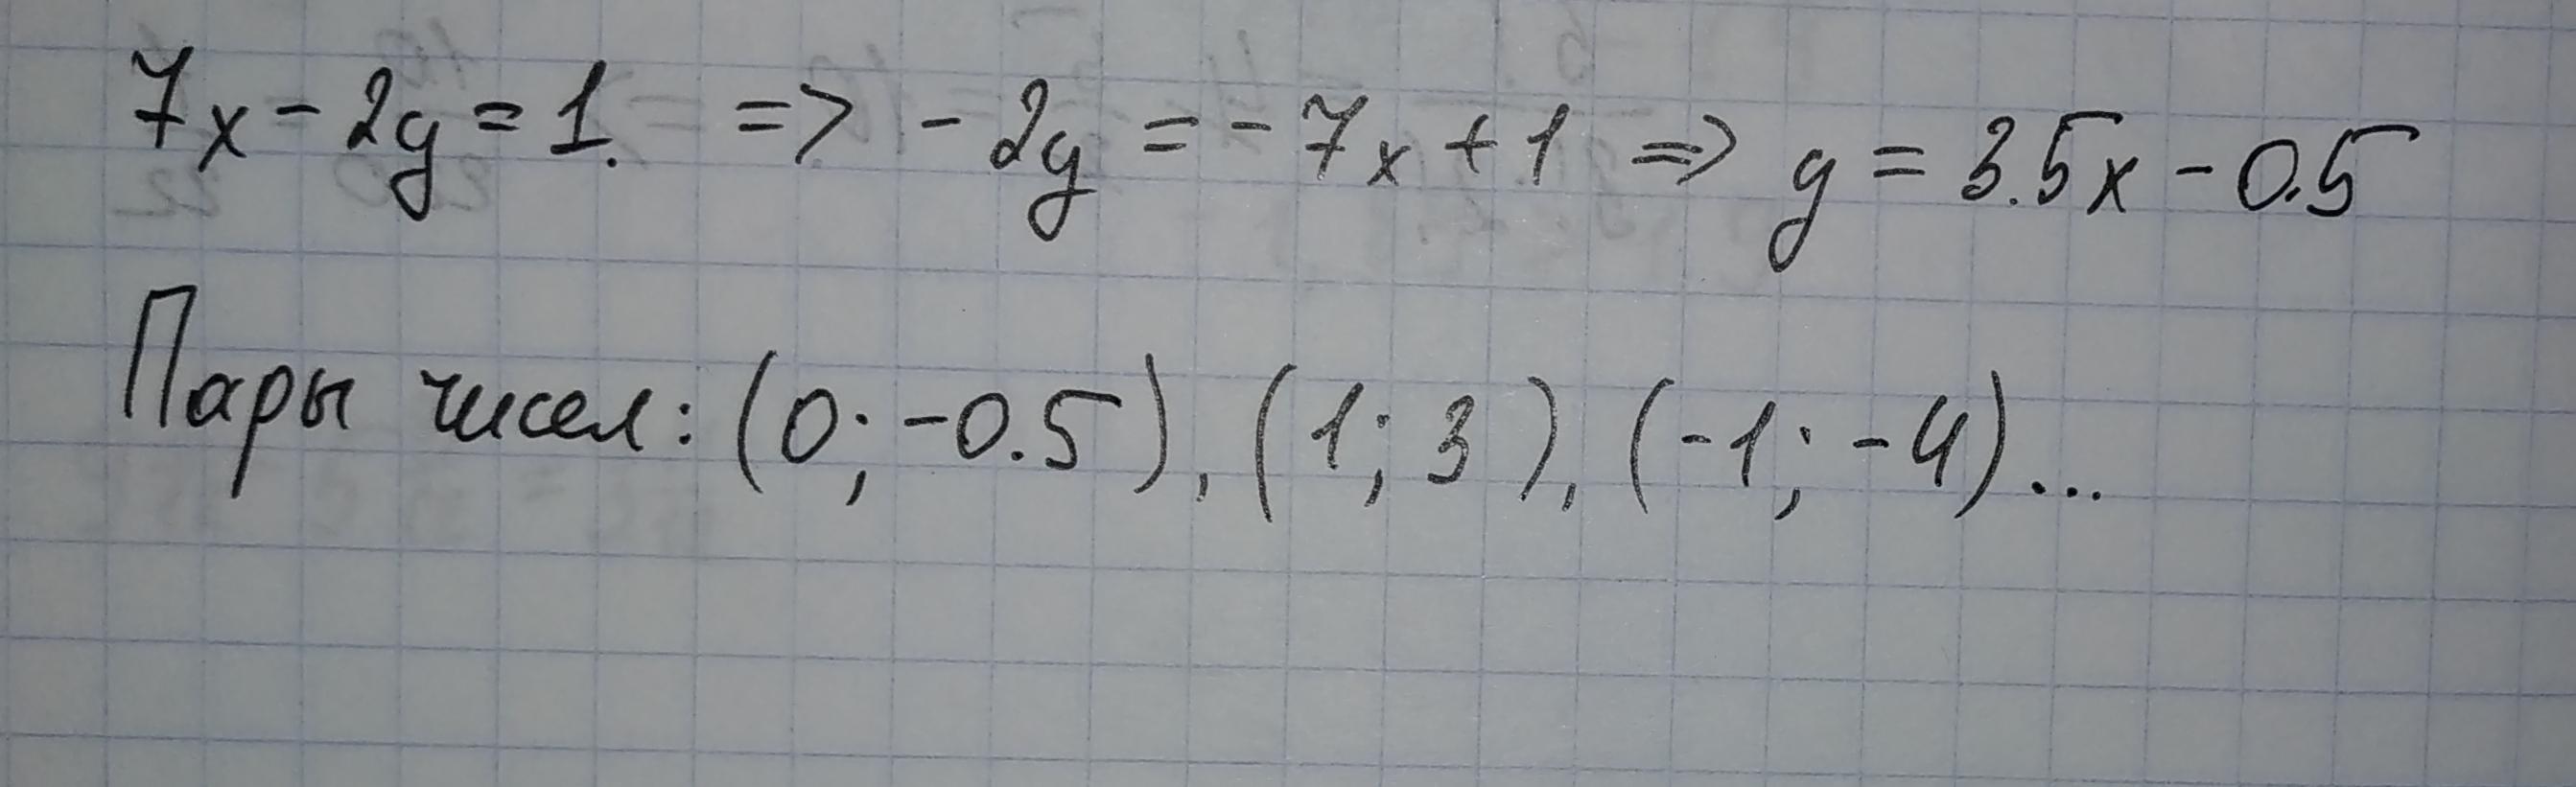 7x - 2y = 1. => - 2y = - 7x + 1 => y = 3.5x - 0.5
Пары чисел: (0; -0.5), (1; 3), (-1; -4)...